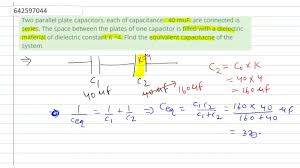 642597044
Two parallel plate capacitors, each of capacitance 40 muF, are connected is
series. The space between the plates of one capacitor is filled with a dielectric
material of dielectric constant K =4. Find the equivalent capacitacne of the
system.
K=4
C1 C2
40 μF 40 μF
160 μF
C2 = C0 × K
= 40 × 4
= 160 μF
1/Ceq = 1/C1 + 1/C2 ⇒ Ceq = C1 C2 / C1 + C2 = 160 × 40 / 160 + 40 μF
= 32